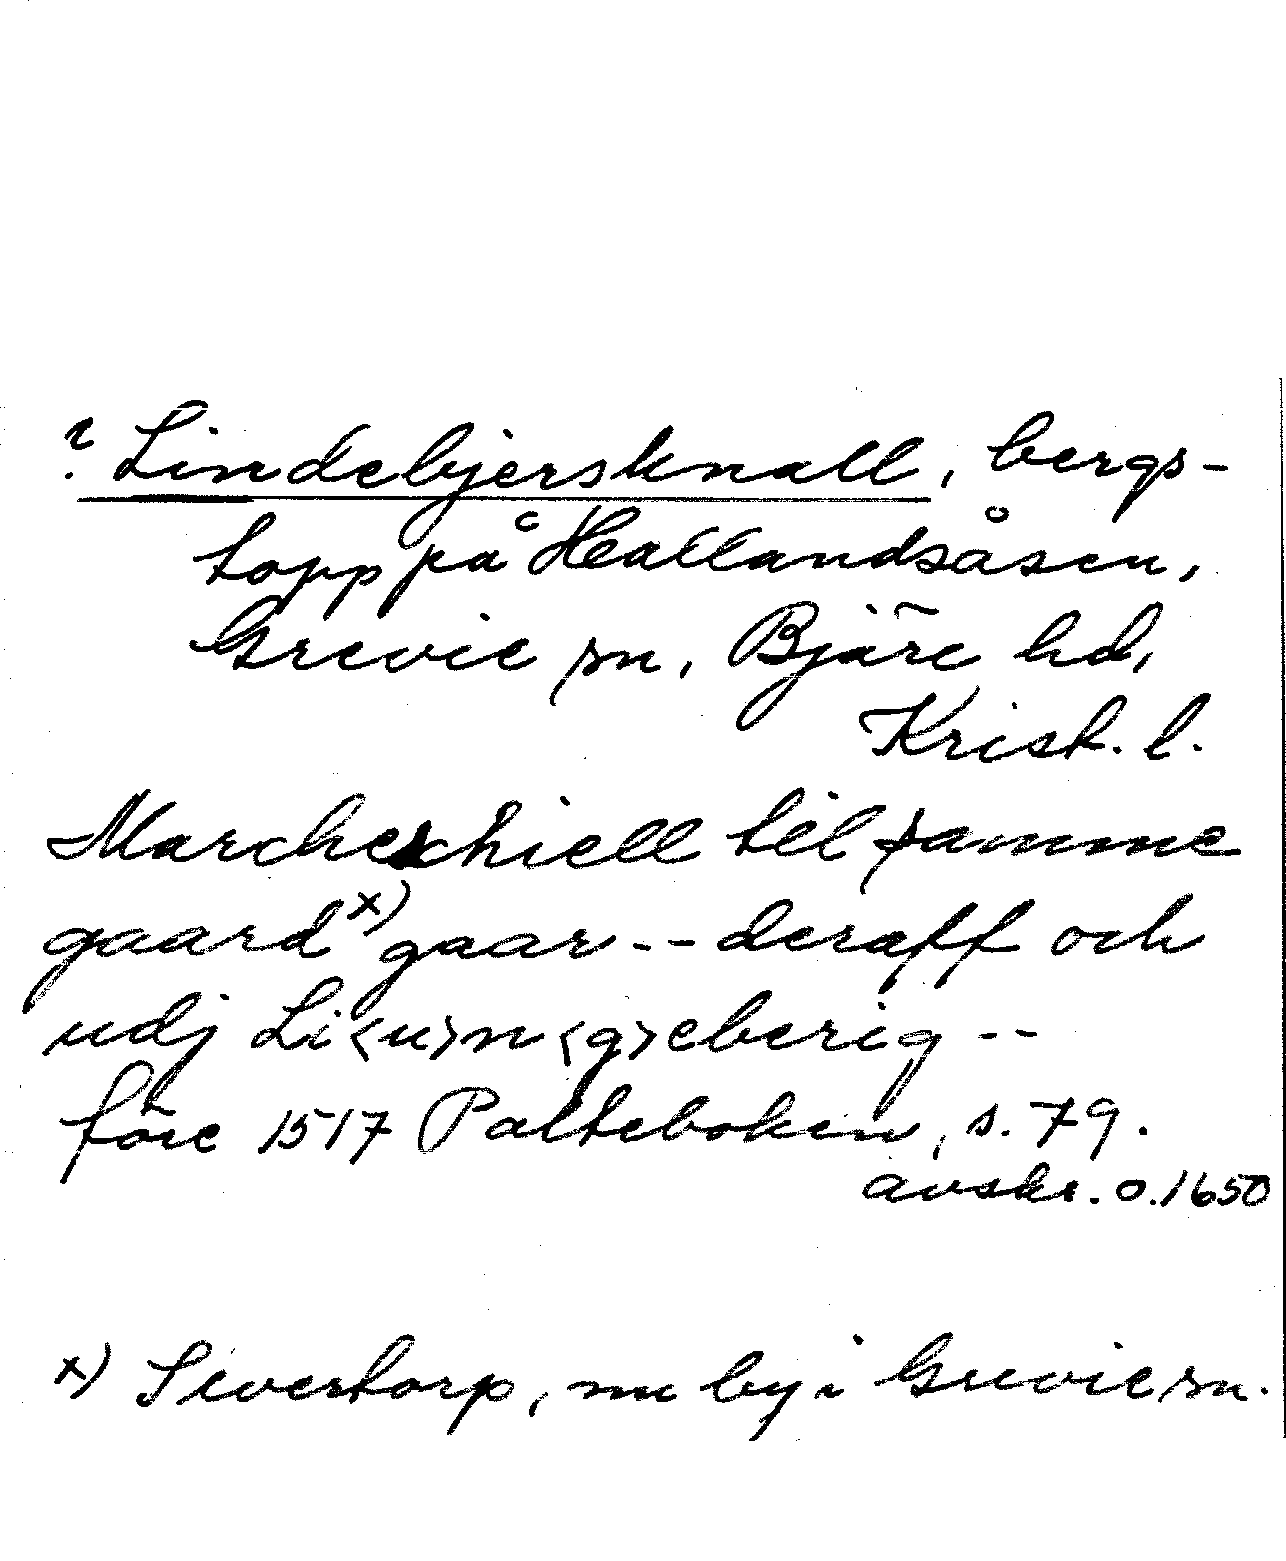 ? Lindebjersknall, bergs-
topp på Hallandsåsen,
Grevie sn, Bjäre hd,
Krist. l.
Marcheschiell til samme
gaard x) gaar -- deraff och
udj Li<u>n<g>eberig --
före 1517 Palteboken, s. 79.
avskr. o. 1650
x) Sivertorp, nu by i Grevie sn.